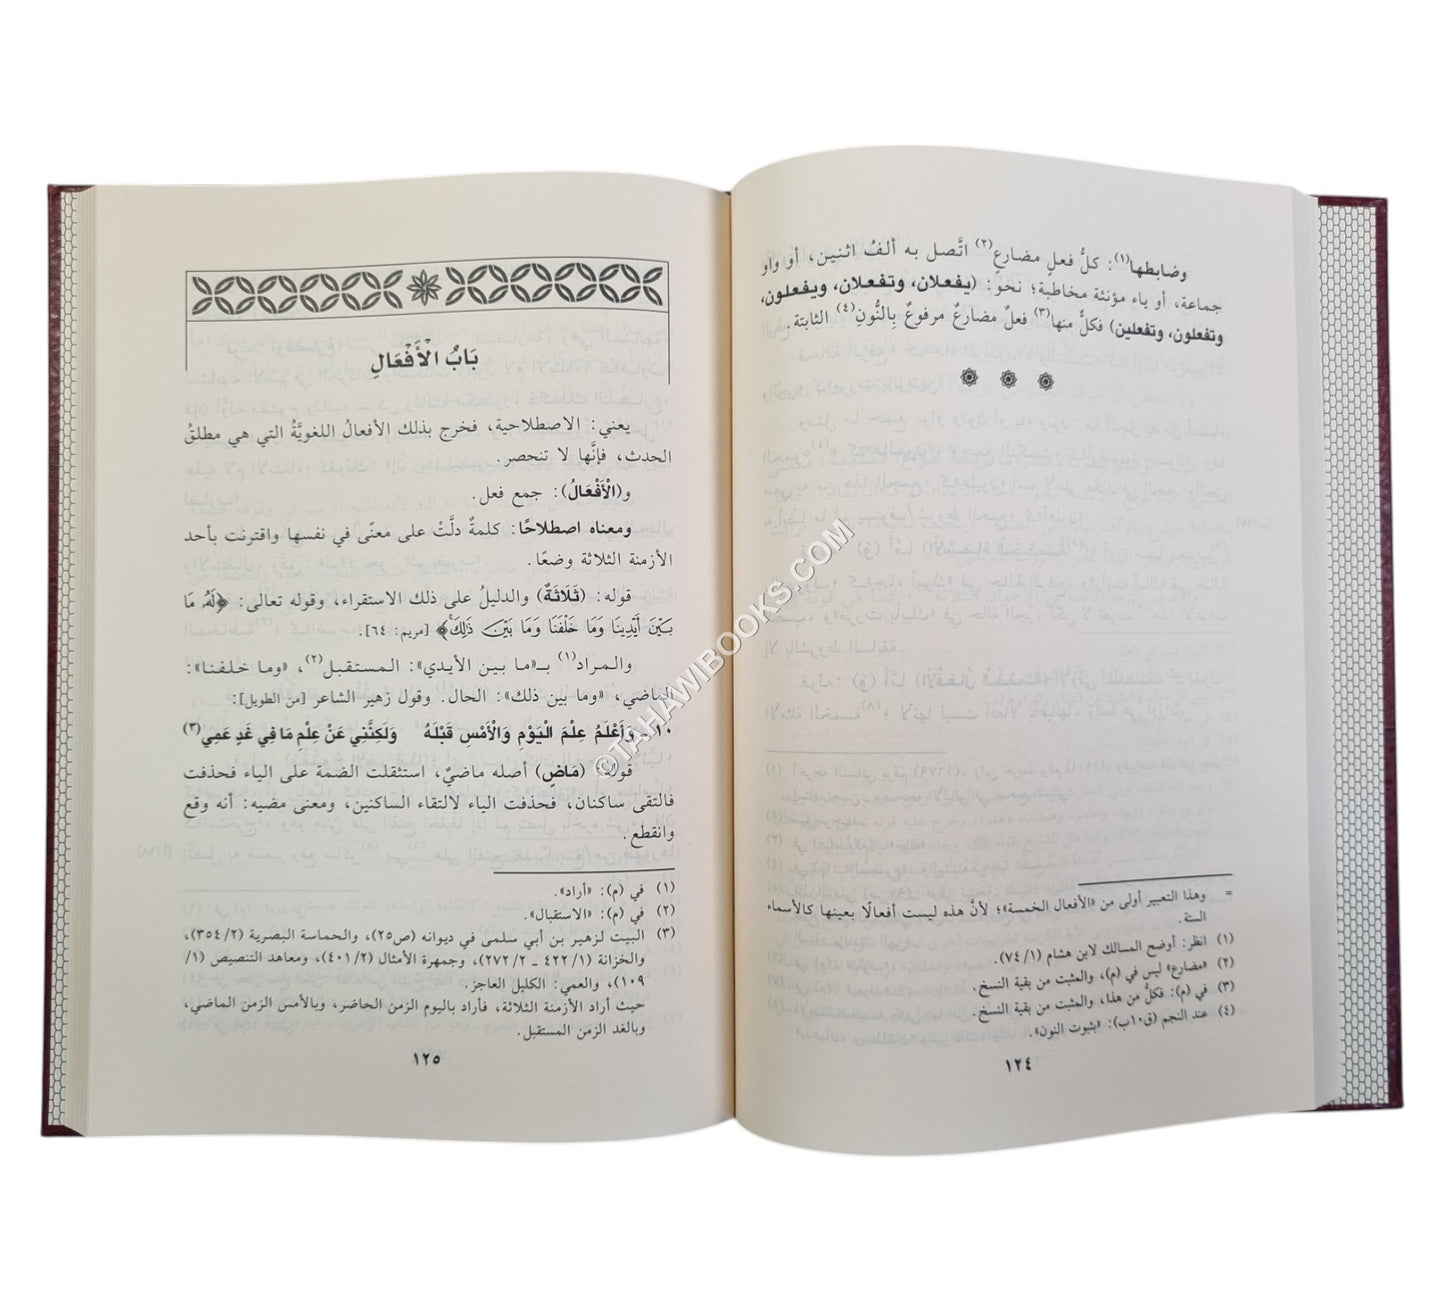 وضابطها(١): كلُّ فعلٍ مضارعٍ(٢) اتَّصل به ألفُ اثنين، أو واو
جماعة، أو ياء مؤنثة مخاطبة؛ نحو: (يفعلان، وتفعلان، ويفعلون،
وتفعلون، وتفعلين) فكلٌّ منها(٣) فعلٌ مضارعٌ مرفوعٌ بِالنُّونِ(٤) الثابتة.
= وهذا التعبير أولى من «الأفعال الخمسة»؛ لأنَّ هذه ليست أفعالًا بعينها كالأسماء
الستة.
(١) انظر: أوضح المسالك لابن هشام (١/ ٧٤).
(٢) «مضارع» ليس في (م)، والمثبت من بقية النسخ.
(٣) في (م): فكلٌّ من هذا، والمثبت من بقية النسخ.
(٤) عند النجم (ق١٠ب): «بثبوت النون».
١٢٤
بَابُ الْأَفْعَالِ
يعني: الاصطلاحية، فخرج بذلك الأفعال اللغويَّةُ التي هي مطلقُ
الحدث، فإنَّها لا تنحصر.
و(الْأَفْعَالُ): جمع فعل.
ومعناه اصطلاحًا: كلمةٌ دلَّتْ على معنًى في نفسها واقترنت بأحد
الأزمنة الثلاثة وضعًا.
قوله: (ثَلَاثَةٌ) والدليلُ على ذلك الاستقراء، وقوله تعالى: ﴿لَهُۥ مَا
بَيْنَ أَيْدِينَا وَمَا خَلْفَنَا وَمَا بَيْنَ ذَٰلِكَ﴾ [مريم: ٦٤].
والمراد(١) بـ«ما بين الأيدي»: المستقبل(٢)، «وما خلفنا»:
الماضي، «وما بين ذلك»: الحال. وقول زهير الشاعر [من الطويل]:
١٠ ـ وَأَعْلَمُ عِلْمَ الْيَوْمِ وَالْأَمْسِ قَبْلَهُ وَلَكِنَّنِي عَنْ عِلْمِ مَا فِي غَدٍ عَمِي(٣)
قوله: (مَاضٍ) أصله ماضيٌ، استثقلت الضمة على الياء فحذفت
فالتقى ساكنان، فحذفت الياء لالتقاء الساكنين، ومعنى مضيه: أنه وقع
وانقطع.
(١) في (م): «أراد».
(٢) في (م): «الاستقبال».
(٣) البيت لزهير بن أبي سلمى في ديوانه (ص٢٥)، والحماسة البصرية (٢/ ٣٥٤)،
والخزانة (١/ ٤٢٢ ـ ٢/ ٢٧٢)، وجمهرة الأمثال (٢/ ٤٠١)، ومعاهد التنصيص (١/
١٠٩)، والعمي: الكليل العاجز.
حيث أراد الأزمنة الثلاثة، فأراد باليوم الزمن الحاضر، وبالأمس الزمن الماضي،
وبالغد الزمن المستقبل.
١٢٥
©TAHAWIBOOKS.COM